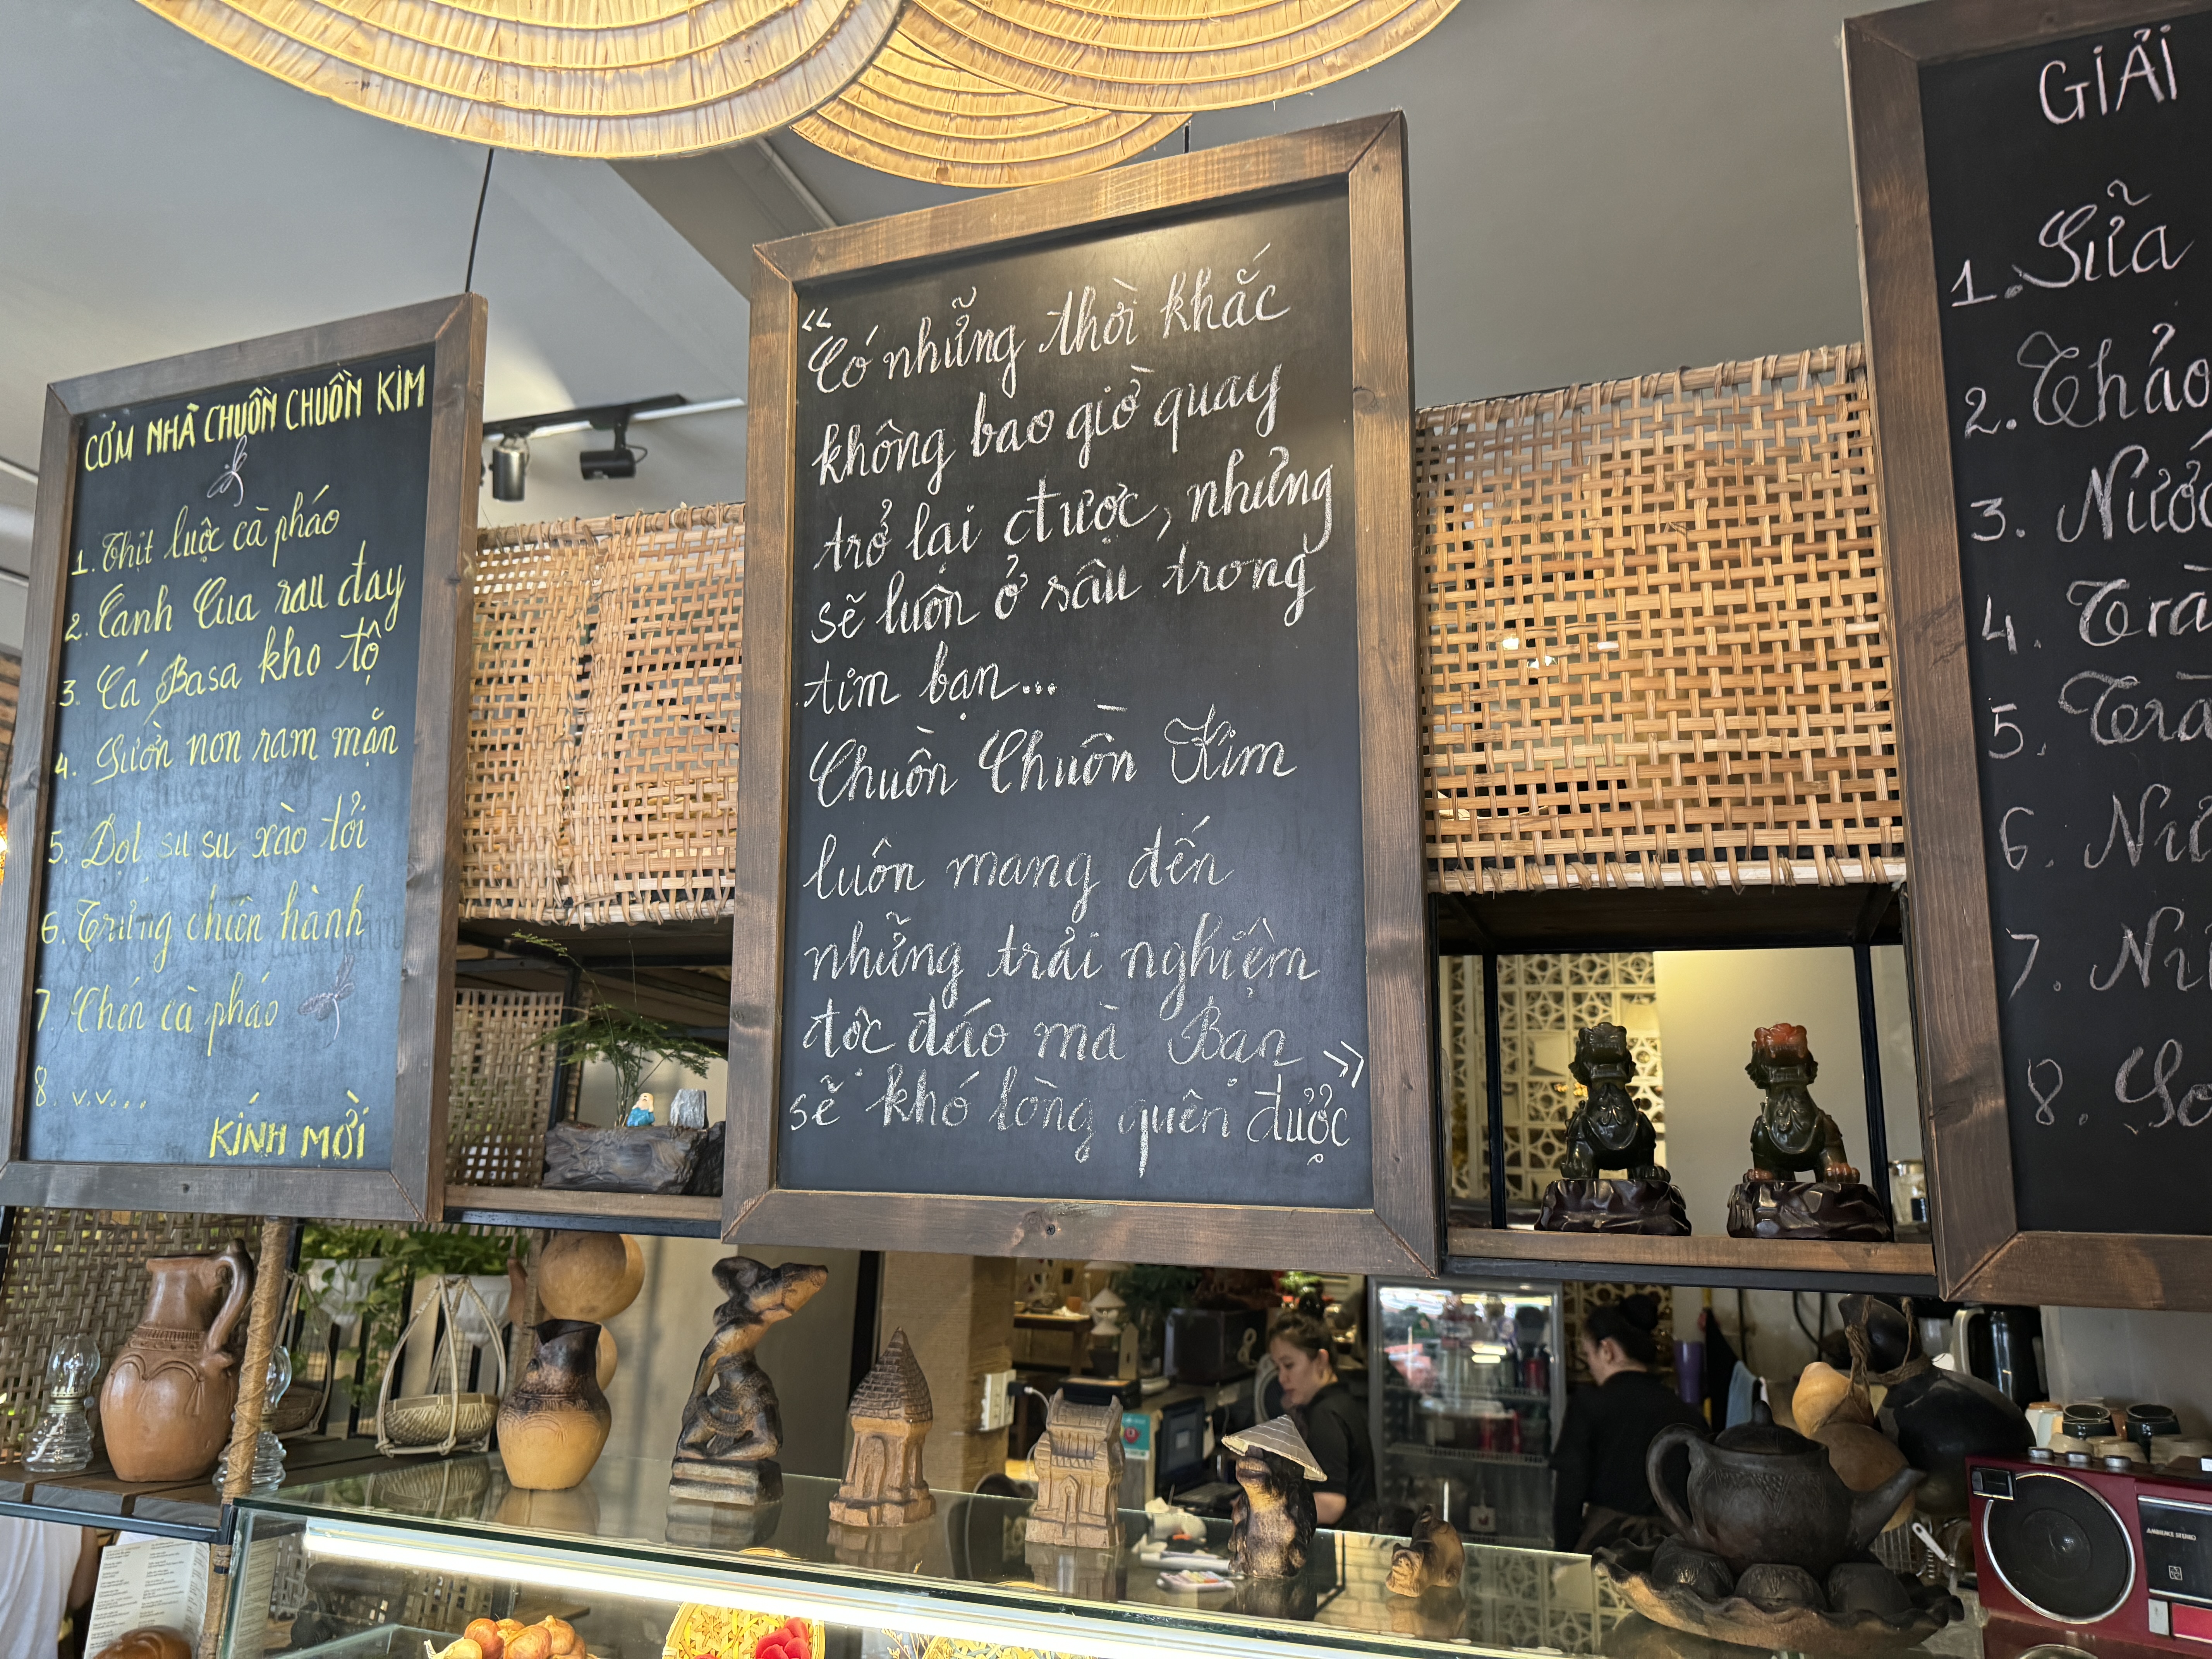 CƠM NHÀ CHUỒN CHUỒN KIM
1. Thịt luộc cà pháo
2. Canh Cua rau đay
3. Cá Basa kho tộ
4. Sườn non ram mặn
5. Đọt su su xào tỏi
6. Trứng chiên hành
7. Chén cà pháo
8. v.v...
KÍNH MỜI
“Có những thời khắc
không bao giờ quay
trở lại được, nhưng
sẽ luôn ở sâu trong
tim bạn...
Chuồn Chuồn Kim
luôn mang đến
những trải nghiệm
độc đáo mà Bạn
sẽ khó lòng quên được”
GIẢI
1. Sữa
2. Thảo
3. Nước
4. Trà
5. Trà
6.
7.
8.
AMBIENCE STEREO